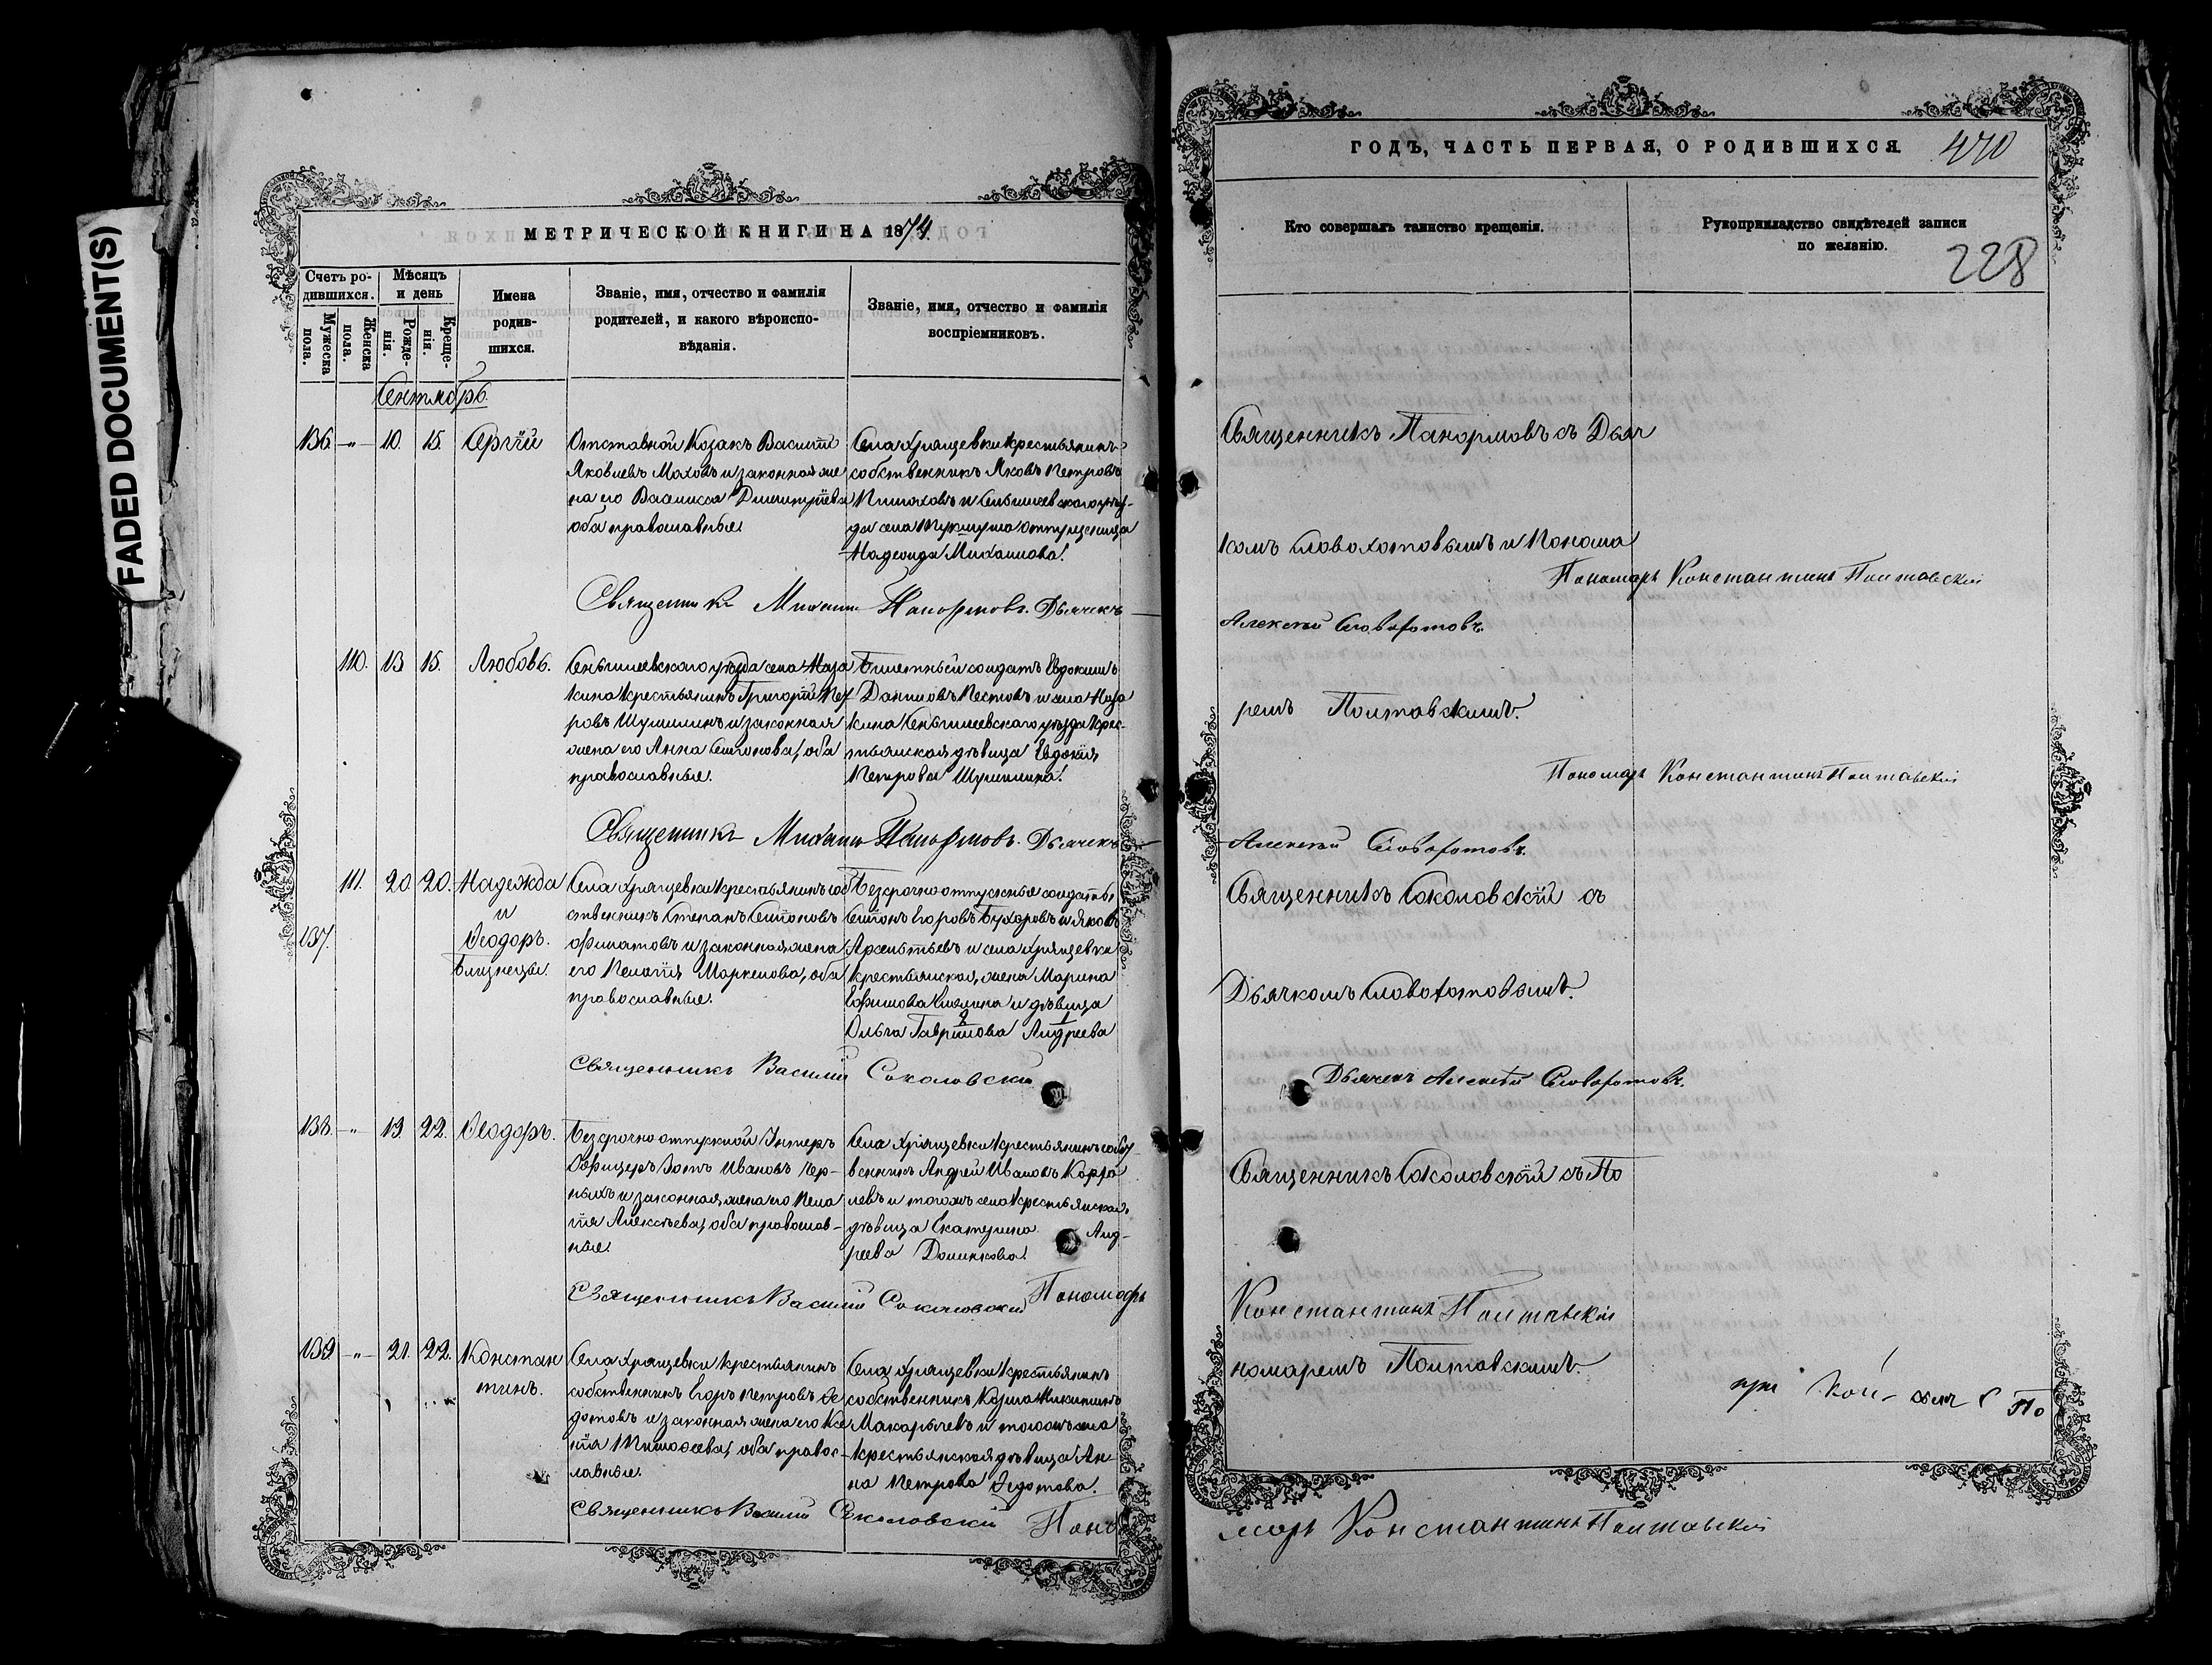 FADED DOCUMENT(S)
МЕТРИЧЕСКОЙ КНИГИ НА 1874.
Счетъ ро-
дившихся.
Мужеска пола.
Женска пола.
Мѣсяцъ
и день
Рожде-
нія.
Креще-
нія.
Имена
родив-
шихся.
Званіе, имя, отчество и фамилія
родителей, и какого вѣроиспо-
вѣданія.
Званіе, имя, отчество и фамилія
воспріемниковъ.
Сентябрь.
136. „ 10. 15. Сергій
Отставной Козакъ Василій
Яковлевъ Маховъ и законная же
на его Василиса Димитріева
оба православные.
Села Хрящевки крестьянинъ
собственникъ Яковъ Петровъ
и Сенгилеевскаго уѣз-
да села
Надежда Михаилова.
Священникъ Михаилъ Панормовъ. Дьячекъ
110. 13 15. Любовь.
Сенгилеевскаго уѣзда села Наза
кина крестьянинъ Григорій Пет
ровъ Шушлинъ и законная
жена его Анна Симонова, оба
православные.
Билетный солдатъ Евдокимъ
Даниловъ Пестовъ и села Наза
кина Сенгилеевскаго уѣзда крес-
тьянская дѣвица Евдокія
Петрова
Священникъ Михаилъ Панормовъ. Дьячекъ
111. 20. 20. Надежда
и
137. Ѳеодоръ.
близнецы.
Села Хрящевки крестьянинъ соб
ственникъ Степанъ Симоновъ
и законная жена
его Пелагія Маркелова, оба
православные.
Безсрочноотпускные солдаты
Симонъ Егоровъ Бухаровъ и Яковъ
и села Хрящевки
крестьянская жена Марина
Ефимова и дѣвица
2 1
Ольга Гаврилова Андреева
Священникъ Василій Соколовскій
138. „ 19. 22. Ѳеодоръ.
Безсрочноотпускной Унтеръ
Офицеръ Ивановъ Чер-
ныхъ и законная жена его Пела
гія Алексѣева, оба православ-
ные.
Села Хрящевки крестьянинъ собст
венникъ Андрей Ивановъ
левъ и тогожъ села крестьянская
дѣвица Екатерина Анд-
реева Долинкова.
Священникъ Василій Соколовскій Пономарь
139. „ 21. 22. Констан
тинъ.
Села Хрящевки крестьянинъ
собственникъ Егоръ Петровъ Ѳе
дотовъ и законная жена его Ксе
нія Тимофеева, оба правос-
лавные.
Села Хрящевки крестьянинъ
собственникъ Козма Никитинъ
Макарычевъ и тогожъ села
крестьянская дѣвица Ан-
на Петрова Ѳедотова.
Священникъ Василій Соколовскій Поно
ГОДЪ, ЧАСТЬ ПЕРВАЯ, О РОДИВШИХСЯ. 470
Кто совершалъ таинство крещенія.
Рукоприкладство свидѣтелей записи
по желанію.
228
Священникъ Панормовъ съ Дьяч
комъ Словохотовымъ и Понома
Пономарь Константинъ Полтавскій
Алексѣй Словохотовъ.
ремъ Полтавскимъ.
Пономарь Константинъ Полтавскій
Алексѣй Словохотовъ.
Священникъ Соколовскій съ
Дьячкомъ Словохотовымъ.
Дьячекъ Алексѣй Словохотовъ.
Священникъ Соколовскій съ По
Константинъ Полтавскій
номаремъ Полтавскимъ.
По
марь Константинъ Полтавскій